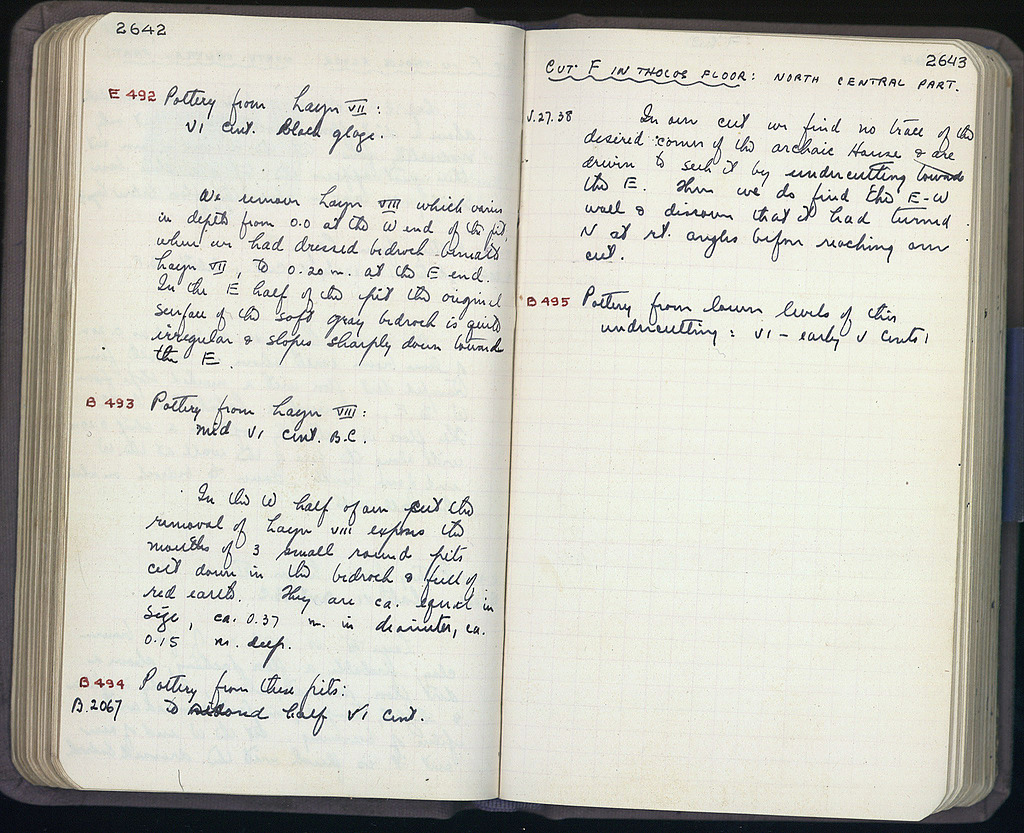 2642
E 492 Pottery from Layer VII:
VI cent. Black glaze.
We remove Layer VIII which varies
in depth from 0.0 at the W end of the pit,
when we had dressed bedrock beneath
Layer VII, to 0.20 m. at the E end.
In the E half of the pit the original
surface of the soft gray bedrock is quite
irregular & slopes sharply down toward
the E.
B 493 Pottery from Layer VIII:
mid VI cent. B.C.
In the W half of our cut the
removal of Layer VIII exposes the
mouths of 3 small round pits
cut down in the bedrock & full of
red earth. They are ca. equal in
size, ca. 0.37 m. in diameter, ca.
0.15 m. deep.
B 494 Pottery from these pits:
B.2067 to second half VI cent.
2643
CUT F IN THOLOS FLOOR: NORTH CENTRAL PART.
V.27.38 In our cut we find no trace of the
desired corner of the archaic House & are
driven to seek it by undercutting towards
the E. Thus we do find the E-W
wall & discover that it had turned
N at rt. angles before reaching our
cut.
B 495 Pottery from lower levels of this
undercutting: VI - early V cents.